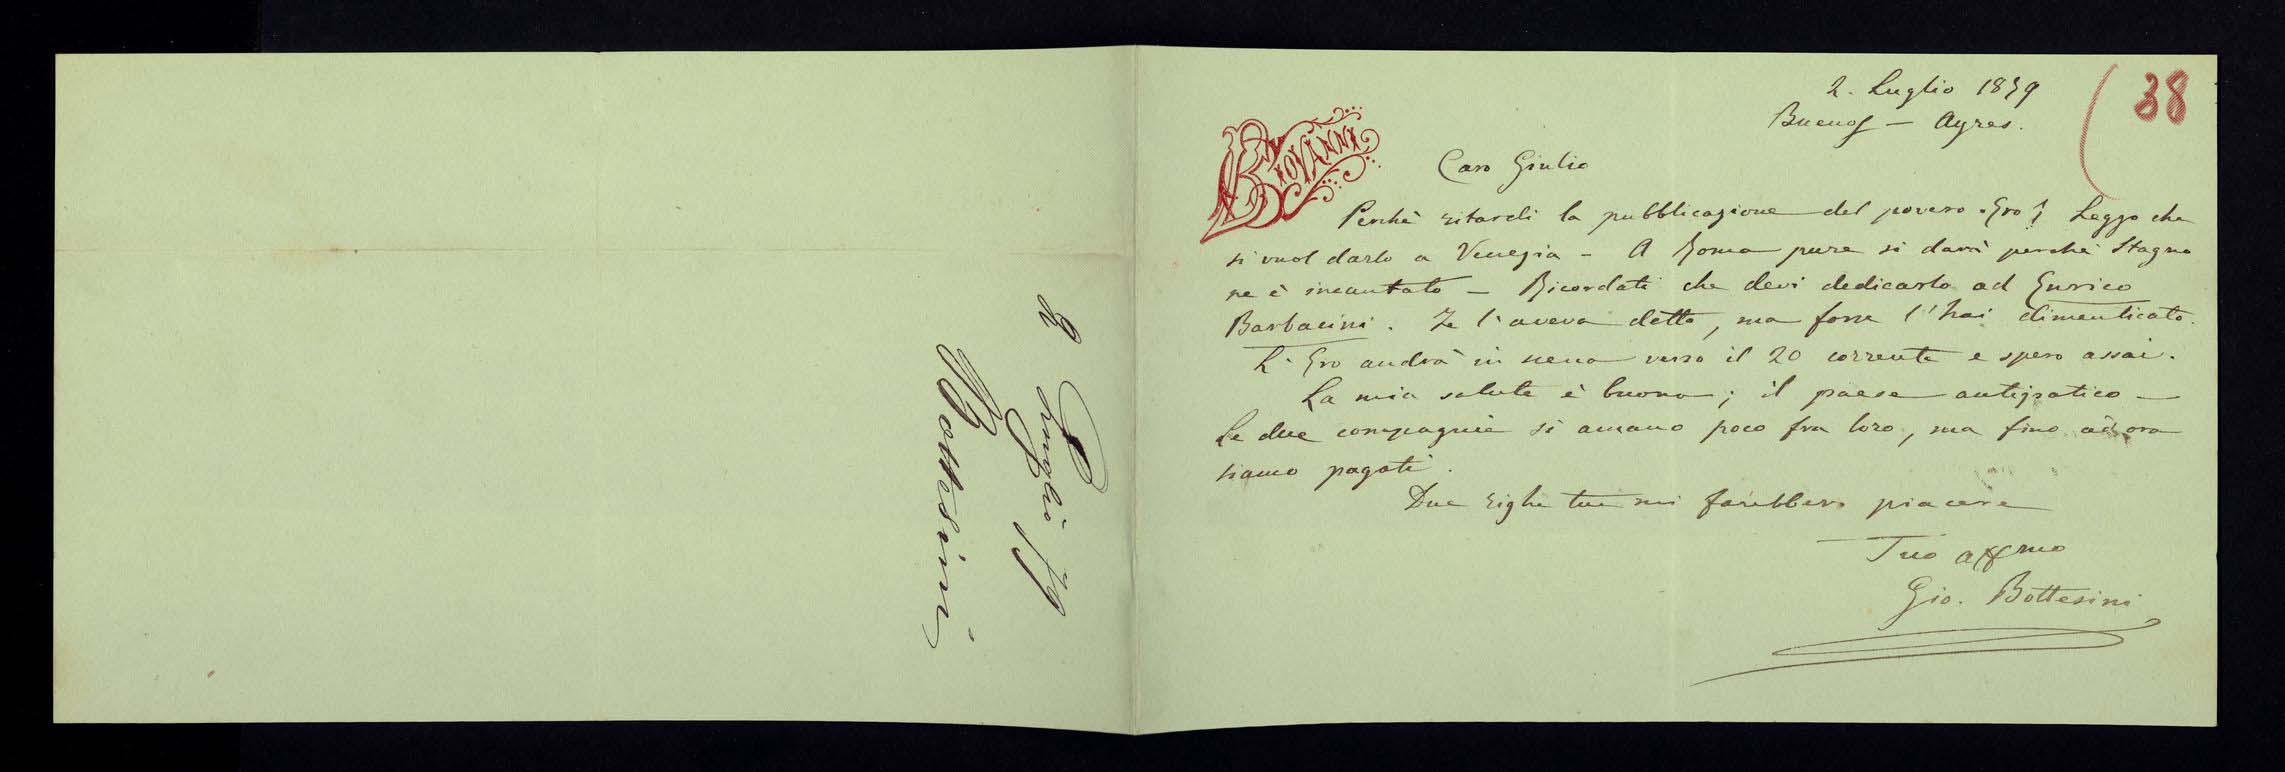 2. Luglio 1879
Buenos - Ayres.
38
GIOVANNI
Caro Giulio
Perchè ritardi la pubblicazione del povero Ero? Leggo che
si vuol darlo a Venezia - A Roma pure si darà perchè Stagno
ne è incantato - Ricordati che devi dedicarlo ad Enrico
Barbacini. Te l'aveva detto, ma forse l'hai dimenticato.
L'Ero andrà in scena verso il 20 corrente e spero assai.
La mia salute è buona; il paese antipatico -
Le due compagnie si amano poco fra loro, ma fino ad ora
siamo pagati.
Due righe tue mi farebbero piacere
Tuo affmo
Gio. Bottesini
2 Luglio 79
Bottesini